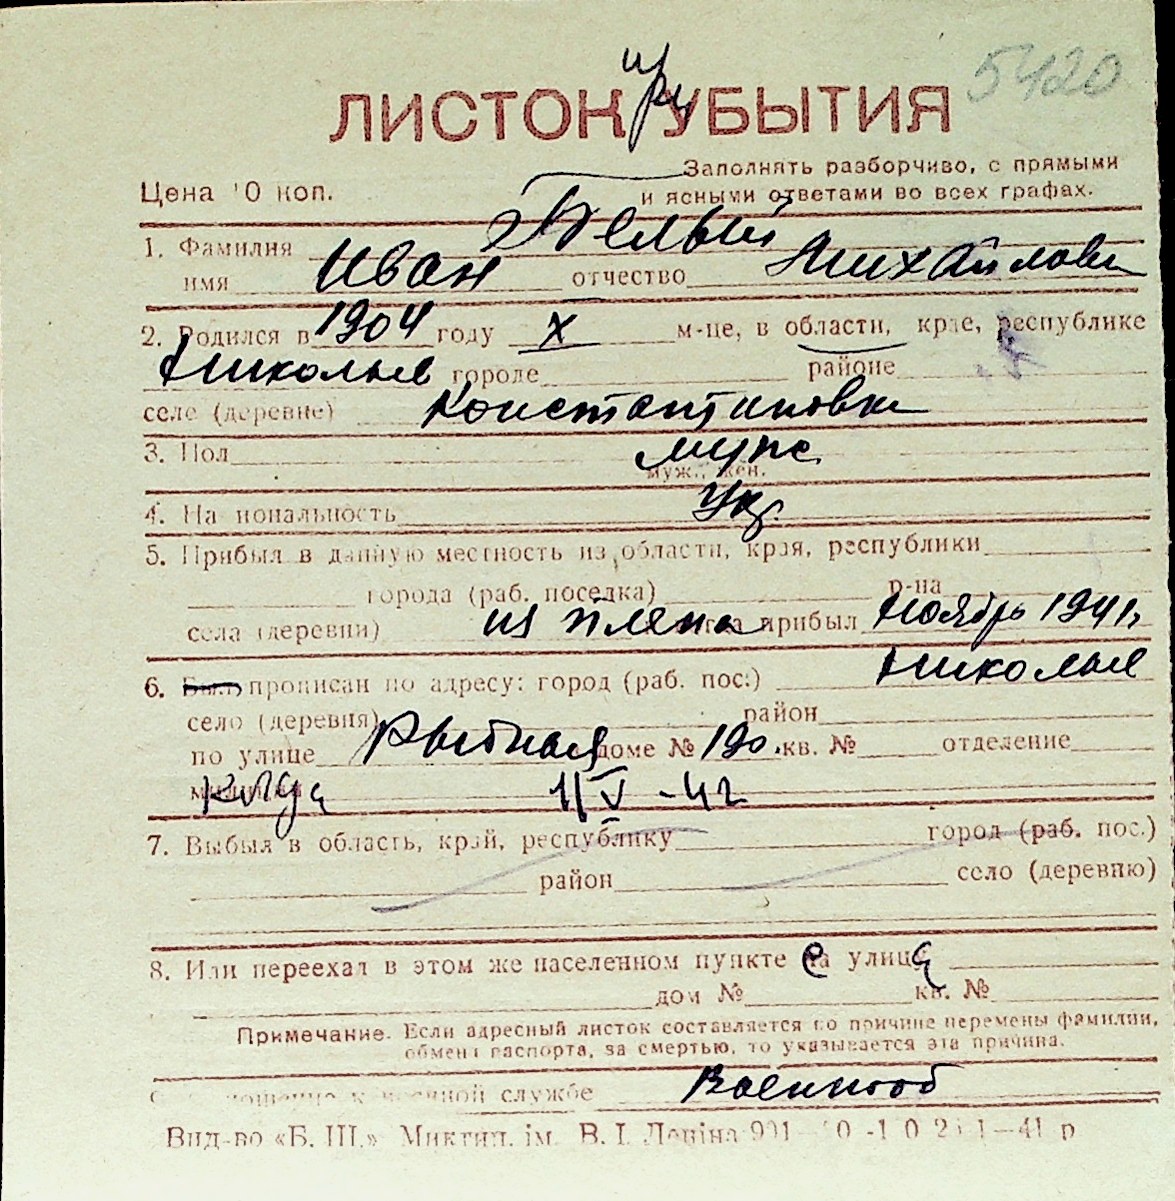 5420
при
ЛИСТОК УБЫТИЯ
Заполнять разборчиво, с прямыми
Цена 10 коп. и ясными ответами во всех графах.
1. Фамилия Белый
имя Иван отчество Михайлович
2. Родился в 1904 году X м-це, в области, крае, республике
Николаев городе районе
селе (деревне) Константиновка
3. Пол муж
муж., жен.
4. Национальность Укр.
5. Прибыл в данную местность из области, края, республики
города (раб. поселка) р-на
села (деревни) из плена прибыл Ноябрь 1941г
6. Был прописан по адресу: город (раб. пос.) Николаев
село (деревня) район
по улице Рыбная доме № 190. кв. № отделение
милиции Когда 1/V-42
7. Выбыл в область, край, республику город (раб. пос.)
район село (деревню)
8. Или переехал в этом же населенном пункте с улицы
дом № кв. №
Примечание. Если адресный листок составляется по причине перемены фамилии,
обмена паспорта, за смертью, то указывается эта причина.
Отношение к военной службе Военнооб
Вид-во «Б. Ш.» Миктип. ім. В. І. Леніна 41 р